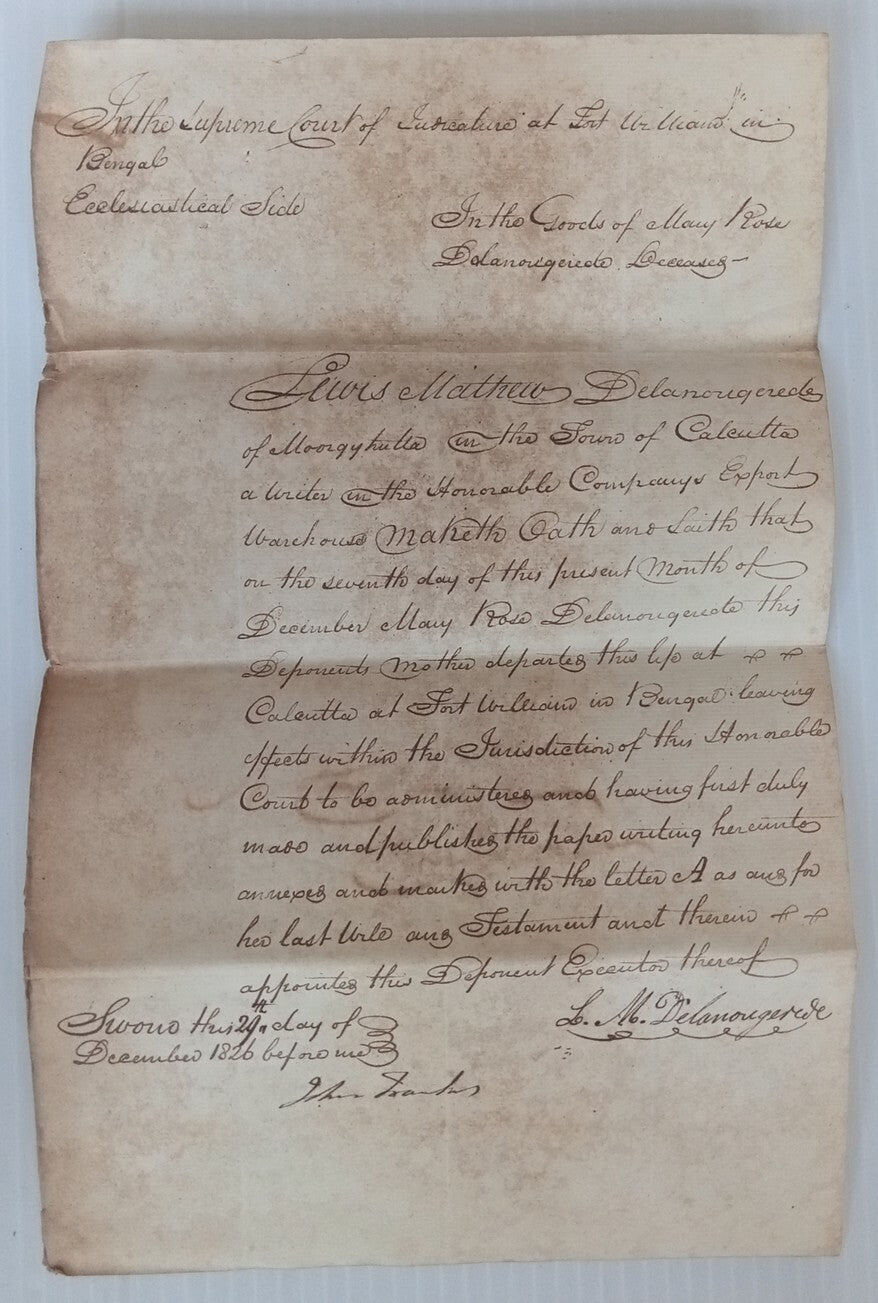 In the Supreme Court of Judicature at Fort William in
Bengal
Ecclesiastical Side
In the Goods of Mary Rose
Delanougerede Deceased –
Lewis Mathew Delanougerede
of Moorgyhutta in the Town of Calcutta
a Writer in the Honorable Companys Export
Warehouse Maketh Oath and Saith that
on the seventh day of this present Month of
December Mary Rose Delanougerede this
Deponents Mother departed this life at
Calcutta at Fort William in Bengal leaving
effects within the Jurisdiction of this Honorable
Court to be administered and having first duly
made and published the paper writing hereunto
annexed and marked with the letter A as and for
her last Will and Testament and therein
appointed this Deponent Executor thereof
Sworn this 29th day of
December 1826 before me
L. M. Delanougerede
John Franks